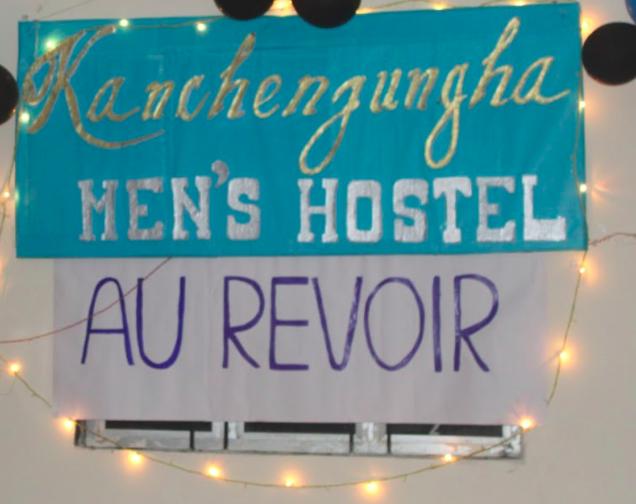 Kanchenzungha
MEN'S HOSTEL
AU REVOIR